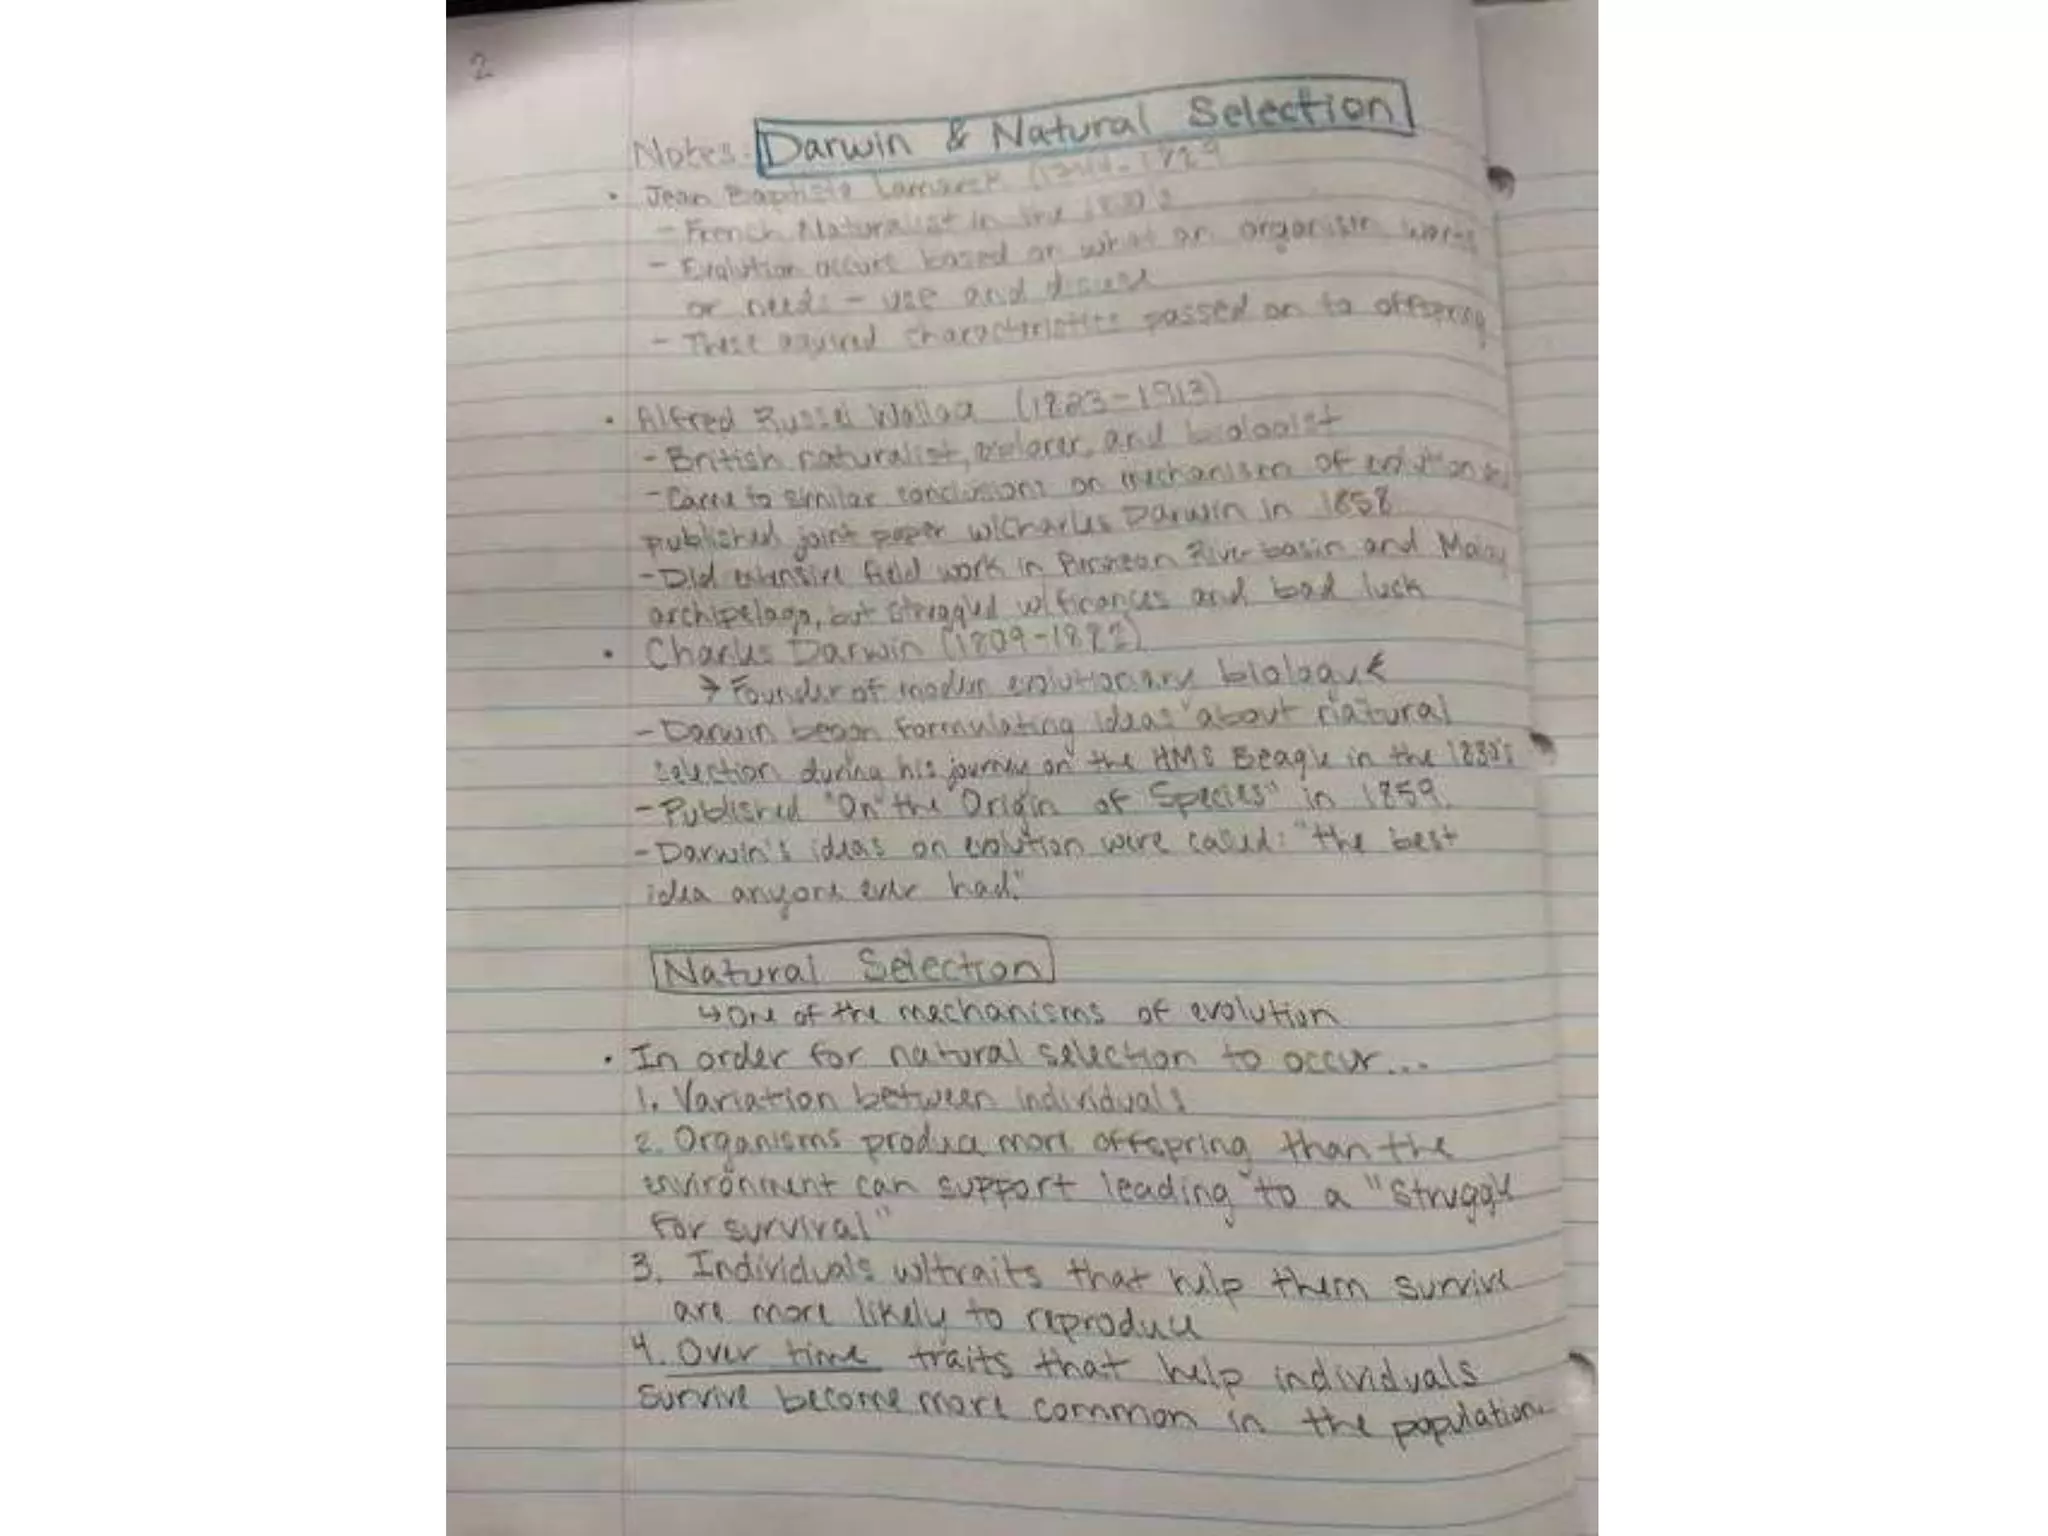 2
Notes: Darwin & Natural Selection
• Jean Baptiste Lamarck (1744-1829
- French Naturalist in the 1800's
- Evolution occurs based on what an organism wants
or needs - use and disuse
- These aquired characteristics passed on to offspring
• Alfred Russel Wallace (1823-1913)
- British naturalist, explorer, and biologist
- Came to similar conclusions on mechanism of evolution
published joint paper w/Charles Darwin in 1858
- Did extensive field work in River basin and Malay
archipelago, but struggled w/ finances and bad luck
• Charles Darwin (1809-1882)
→ Founder of modern evolutionary biology ←
- Darwin began formulating ideas about natural
selection during his journey on the HMS Beagle in the 1830's
- Published "On the Origin of Species" in 1859.
- Darwin's ideas on evolution were called: "the best
idea anyone ever had."
Natural Selection
↳ One of the mechanisms of evolution
• In order for natural selection to occur...
1. Variation between individuals
2. Organisms produce more offspring than the
environment can support leading to a "struggle
for survival"
3. Individuals w/traits that help them survive
are more likely to reproduce
4. Over time traits that help individuals
survive become more common in the population.